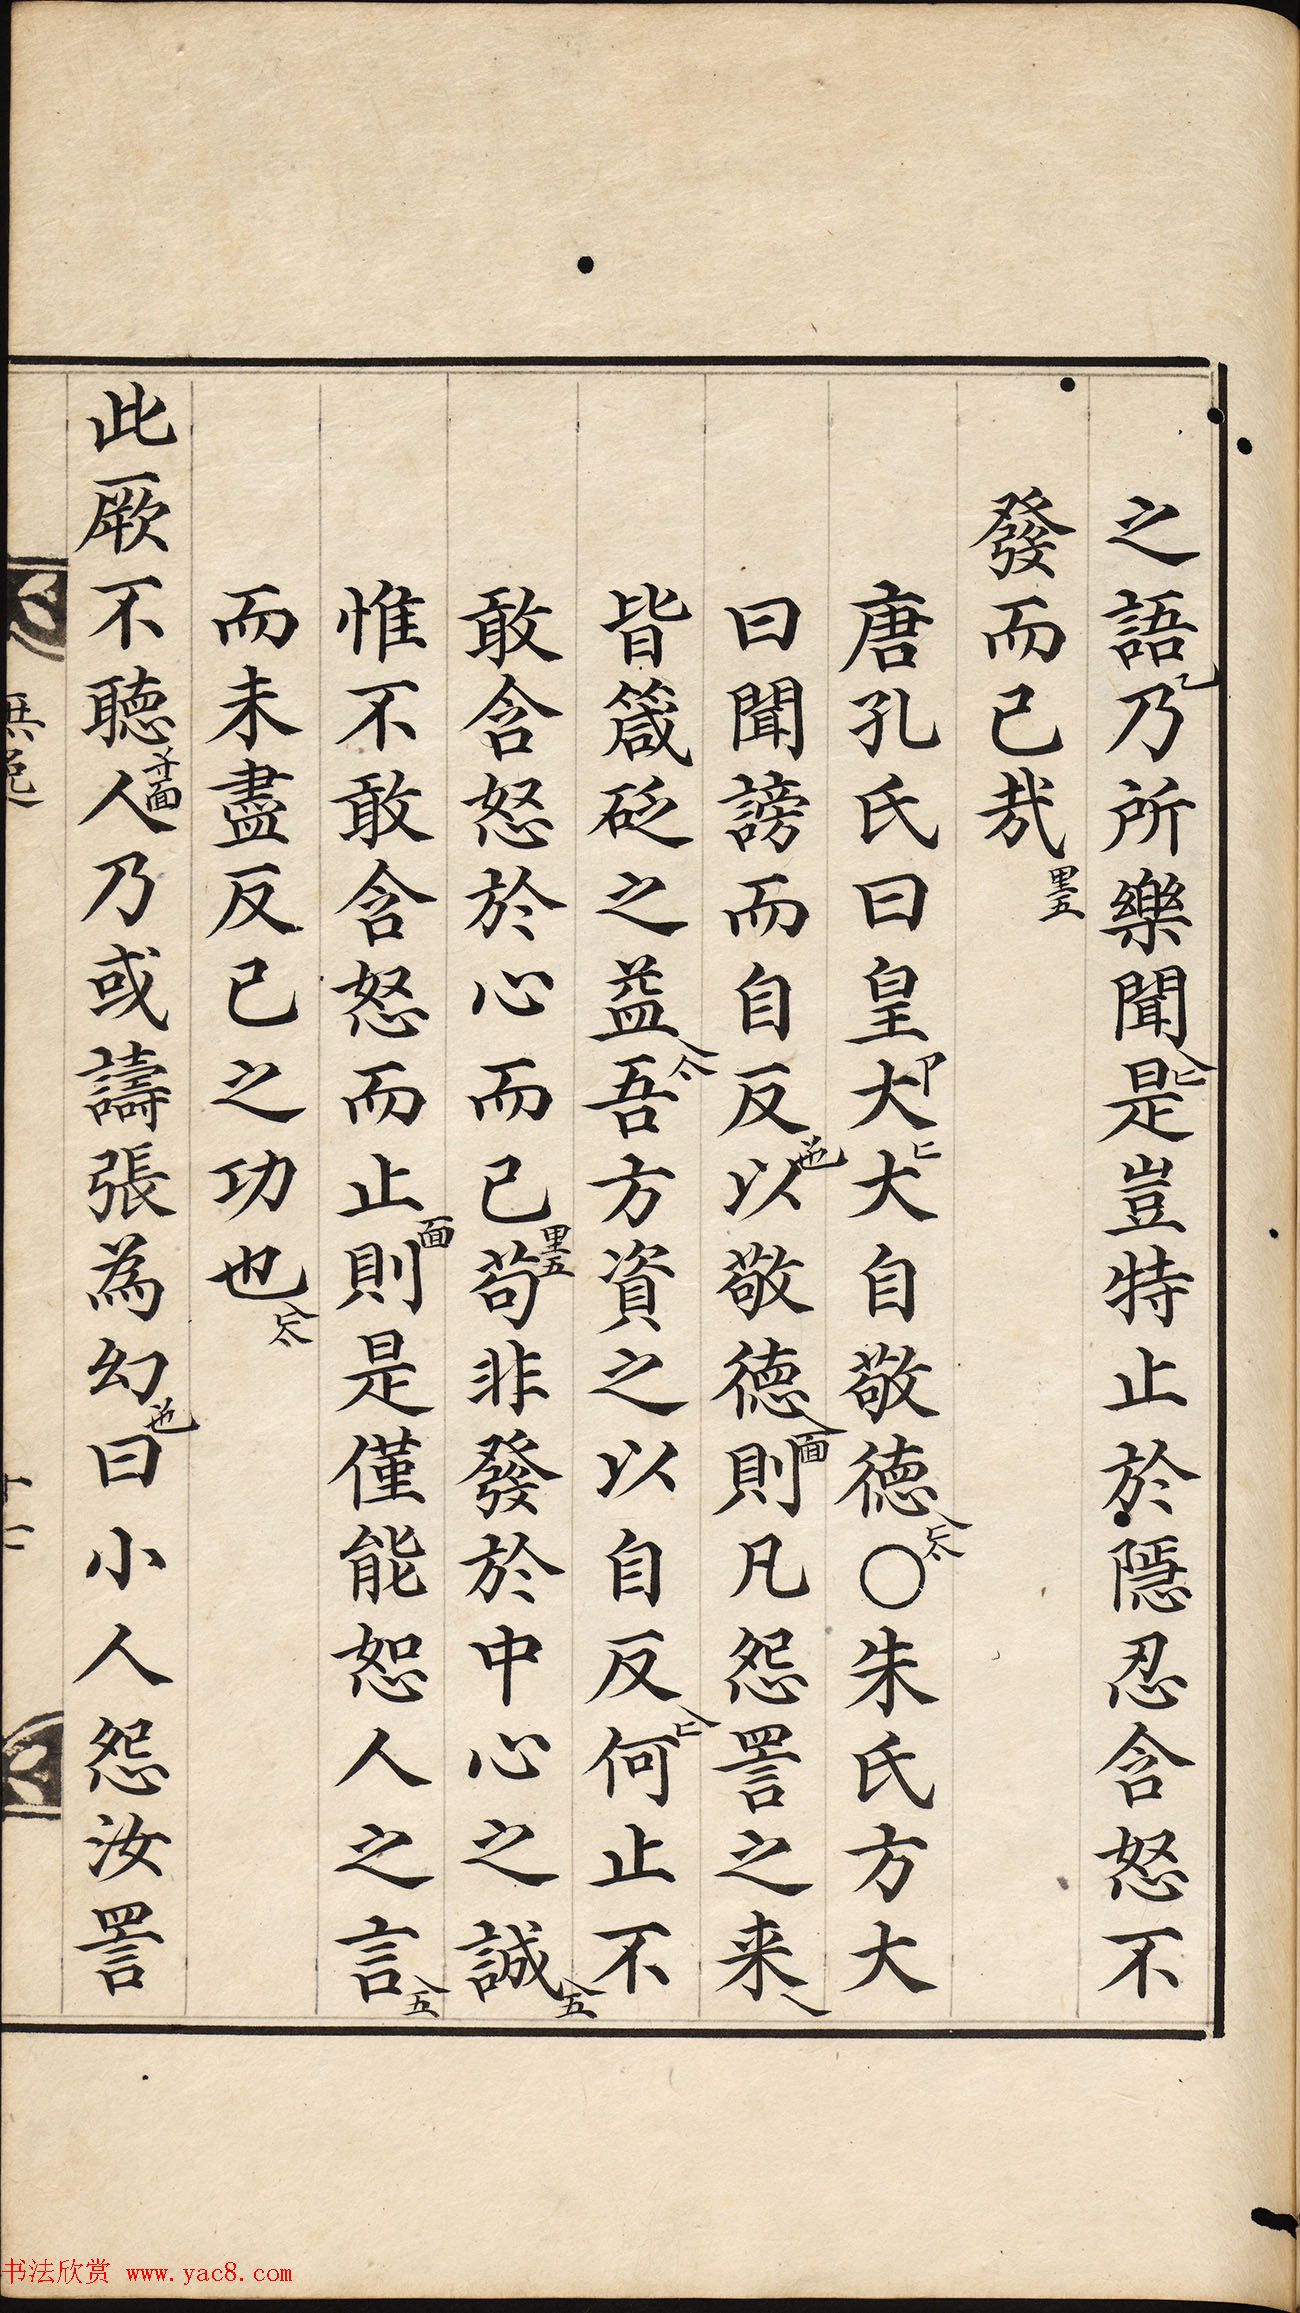 之語乃所樂聞是豈特止於隱忍含怒不
發而已哉
唐孔氏曰皇大大自敬德○朱氏方大
曰聞謗而自反以敬德則凡怨詈之来
皆箴砭之益吾方資之以自反何止不
敢含怒於心而已苟非發於中心之誠
惟不敢含怒而止則是僅能恕人之言
而未盡反已之功也
此厥不聽人乃或譸張為幻曰小人怨汝詈
無逸
十二
书法欣赏 www.yac8.com